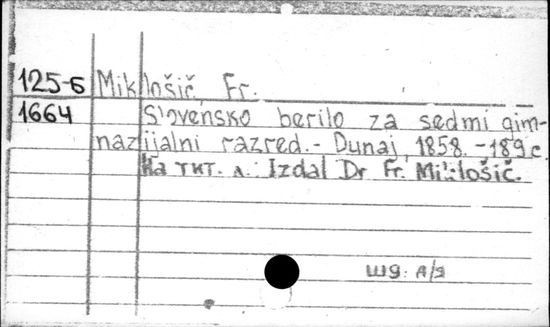 125-Б Miklošič, Fr.
1664 Slovensko berilo za sedmi gim-
nazijalni razred.- Dunaj, 1858. - 189 с.
На тит. л.: Izdal Dr Fr. Miklošič.
шд: А/я